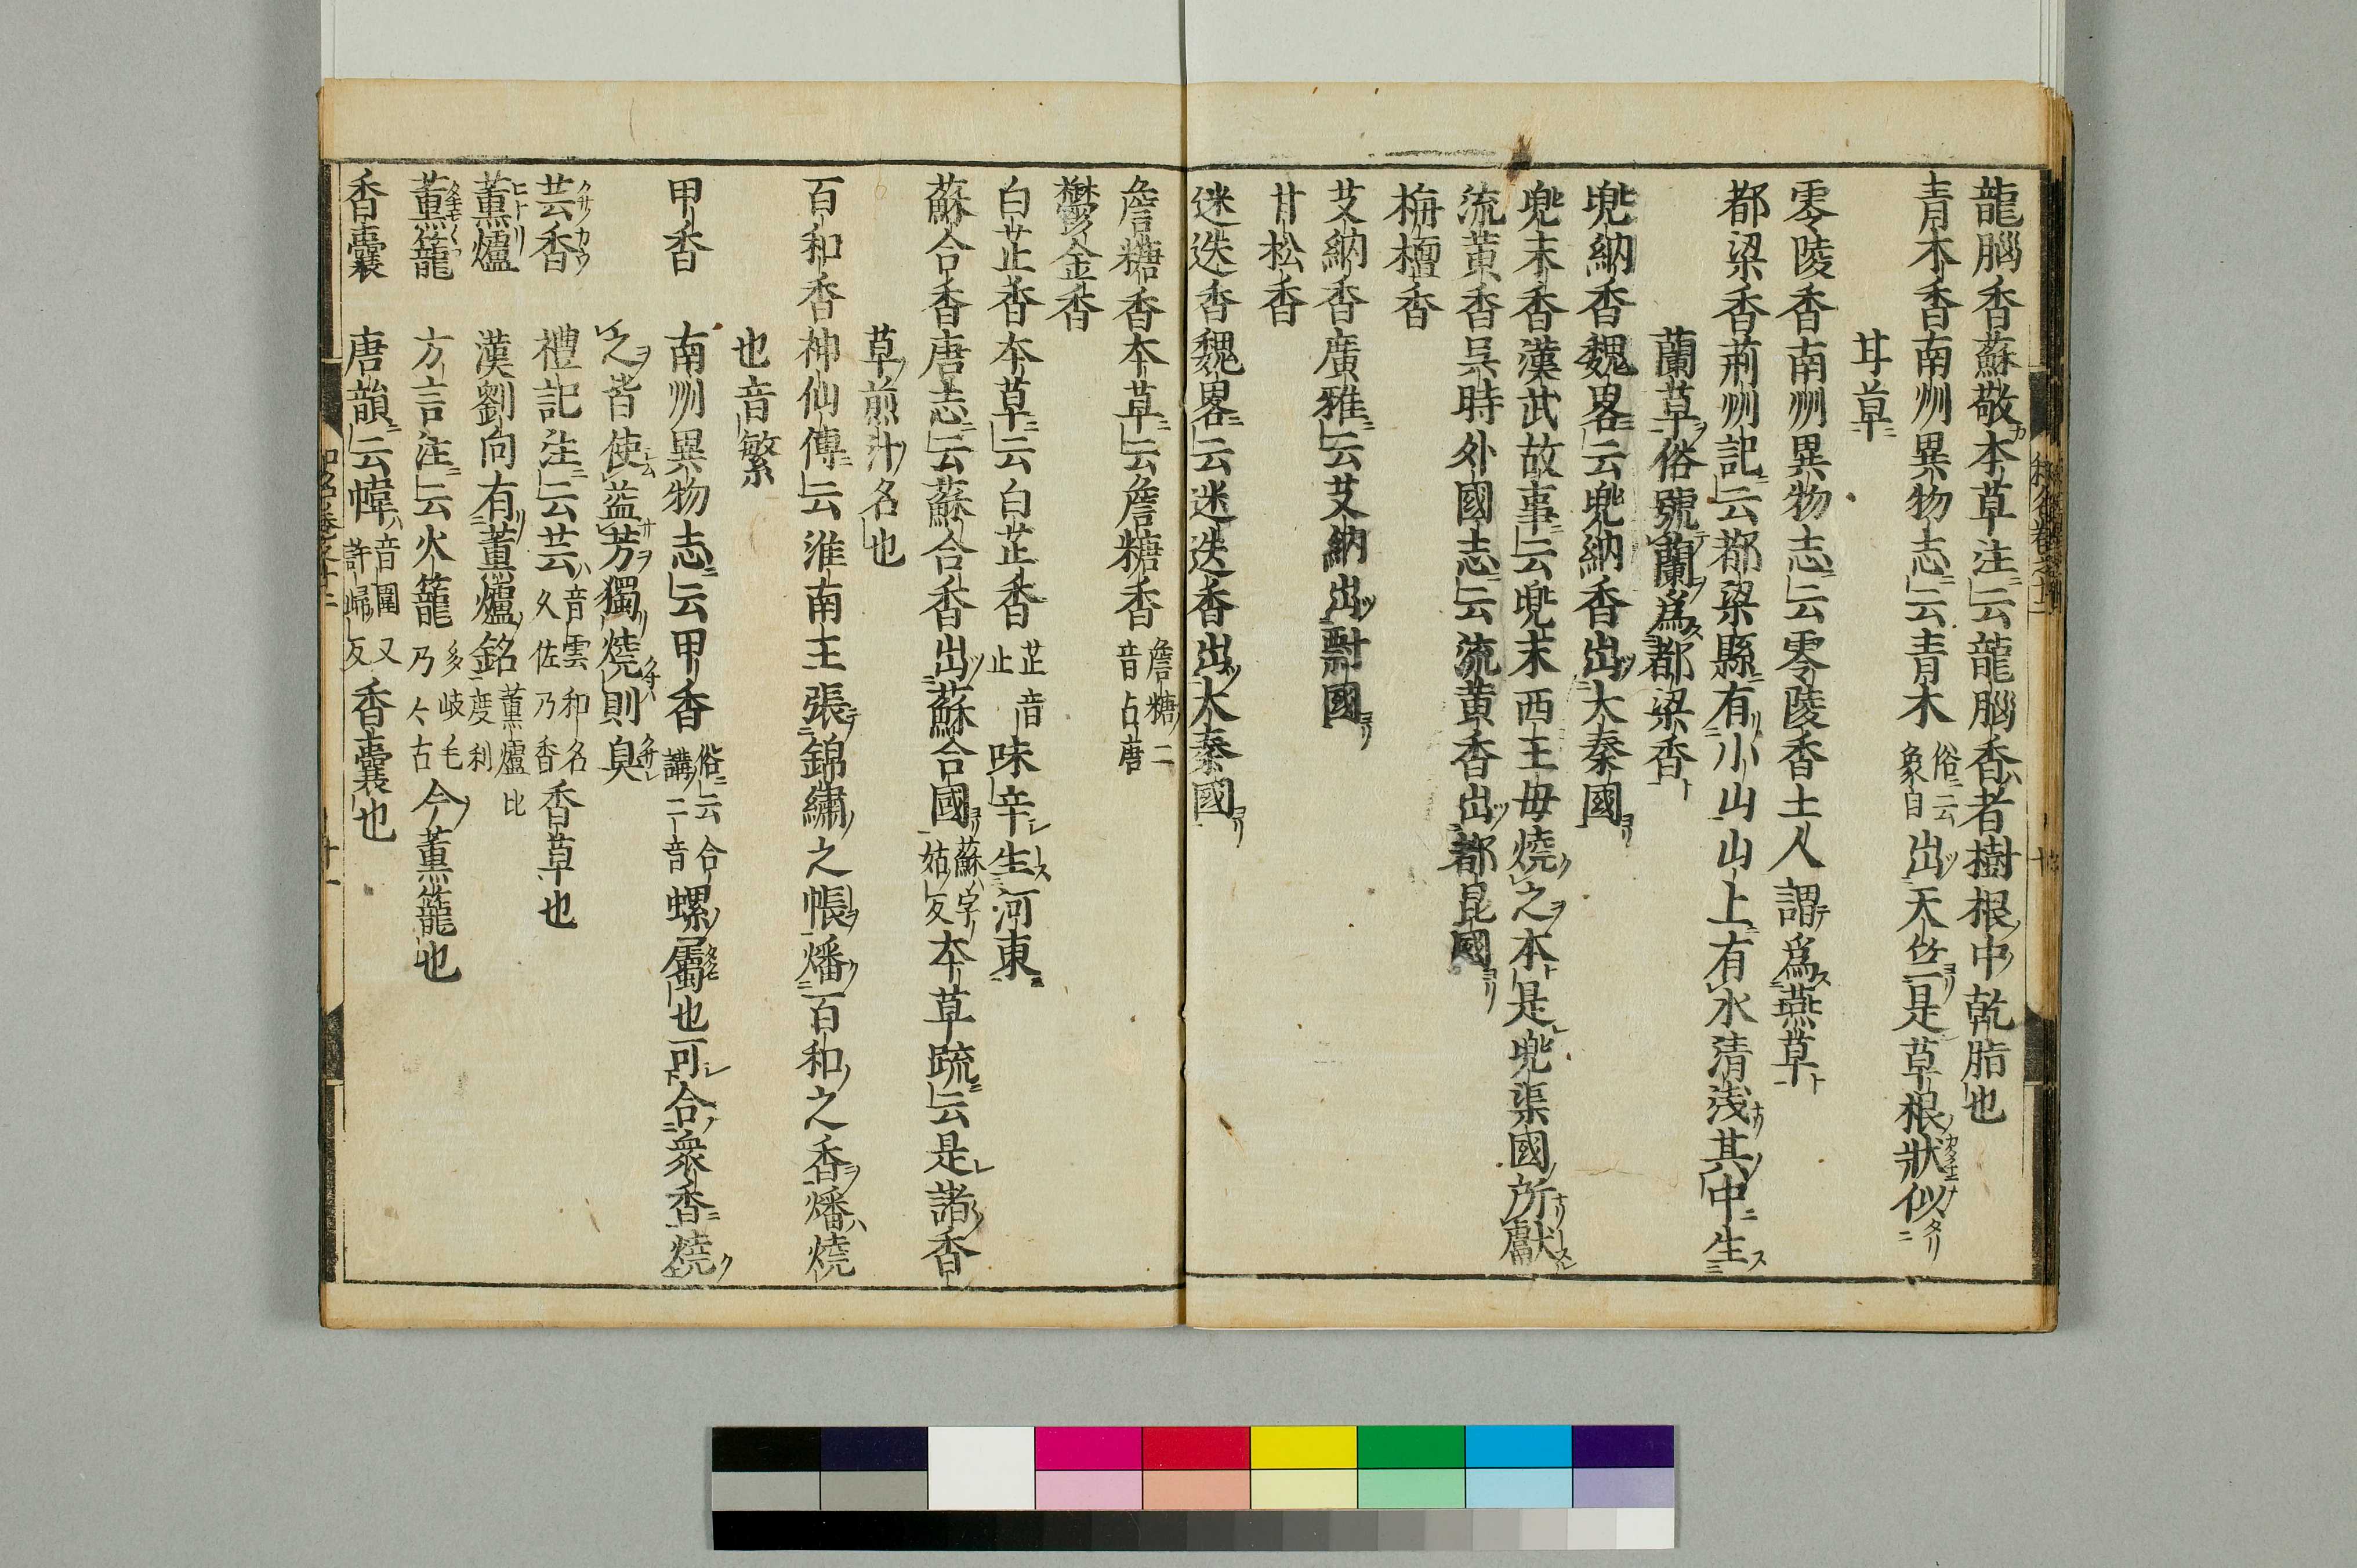 龍腦香蘇敬本草注云龍腦香者樹根中乾脂也
青木香南州異物志云青木俗云象目出天竺是草根狀似
甘草
零陵香南州異物志云零陵香土人謂爲燕草
都梁香荊州記云都梁縣有小山山上有水清浅其中生
蘭草俗號蘭爲都梁香
兜納香魏畧云兜納香出大秦國
兜末香漢武故事云兜末西王母燒之本是兜渠國所獻
流黄香吴時外國志云流黄香出都昆國
栴檀香
艾納香廣雅云艾納出剽國
甘松香
迷迭香魏畧云迷迭香出大秦國
詹糖香本草云詹糖香詹糖二音占唐
鬱金香
白芷香本草云白芷香芷音止味辛生河東
蘇合香唐志云蘇合香出蘇合國蘇字姑反本草疏云是諸香
草煎汁名也
百和香神仙傳云淮南王張錦繡之帳燔百和之香燔燒
也音繁
甲香 南州異物志云甲香俗云合講二音螺屬也可合衆香燒
之皆使益芳獨燒則臭
芸香 禮記注云芸音雲和名久佐乃香香草也
薫爐 漢劉向有薫爐銘薫爐比度利
薫籠 方言注云火籠多岐毛乃々古今薫籠也
香囊 唐韻云幃音圍又許歸反香囊也